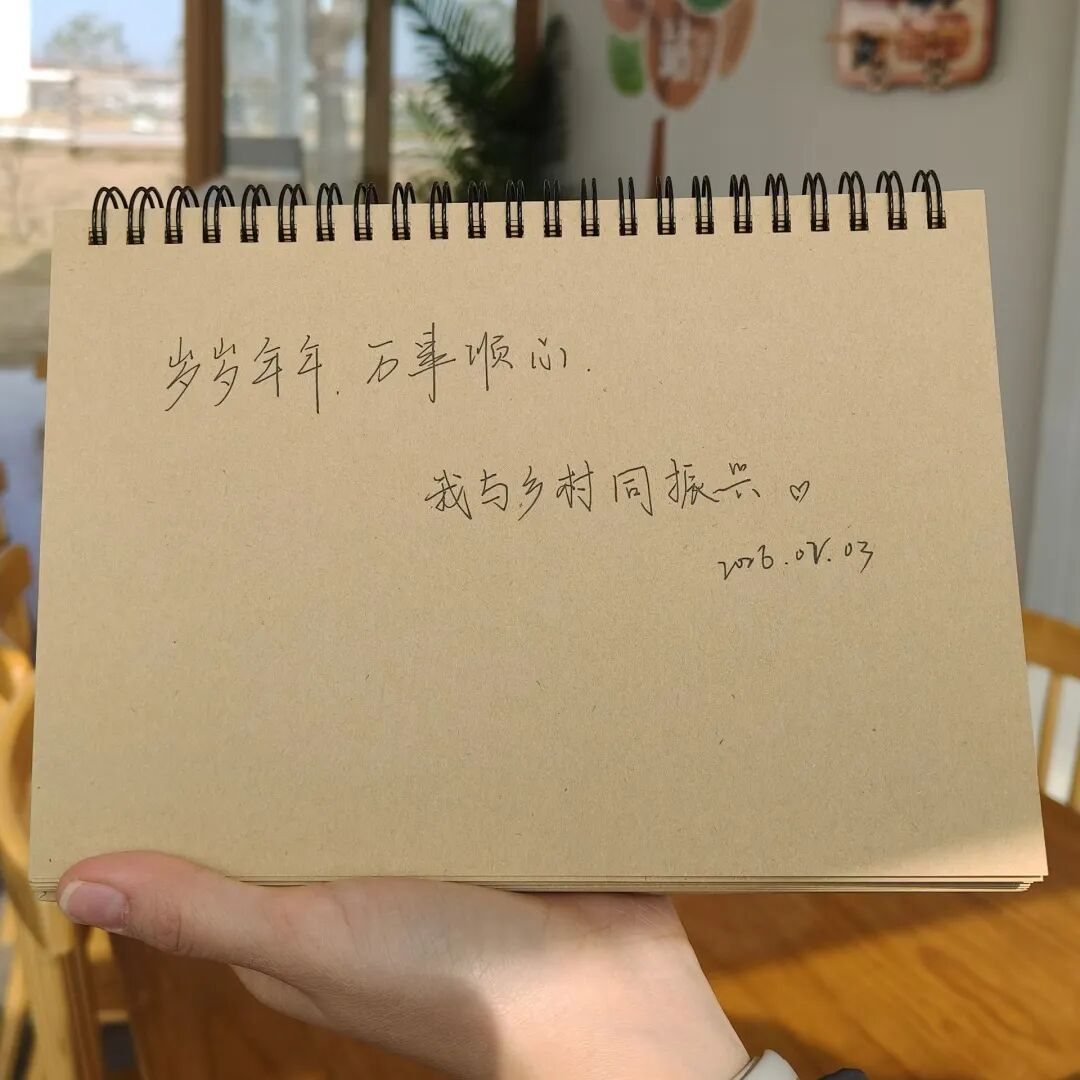 岁岁年年.万事顺心.
我与乡村同振兴♡
2026.02.03